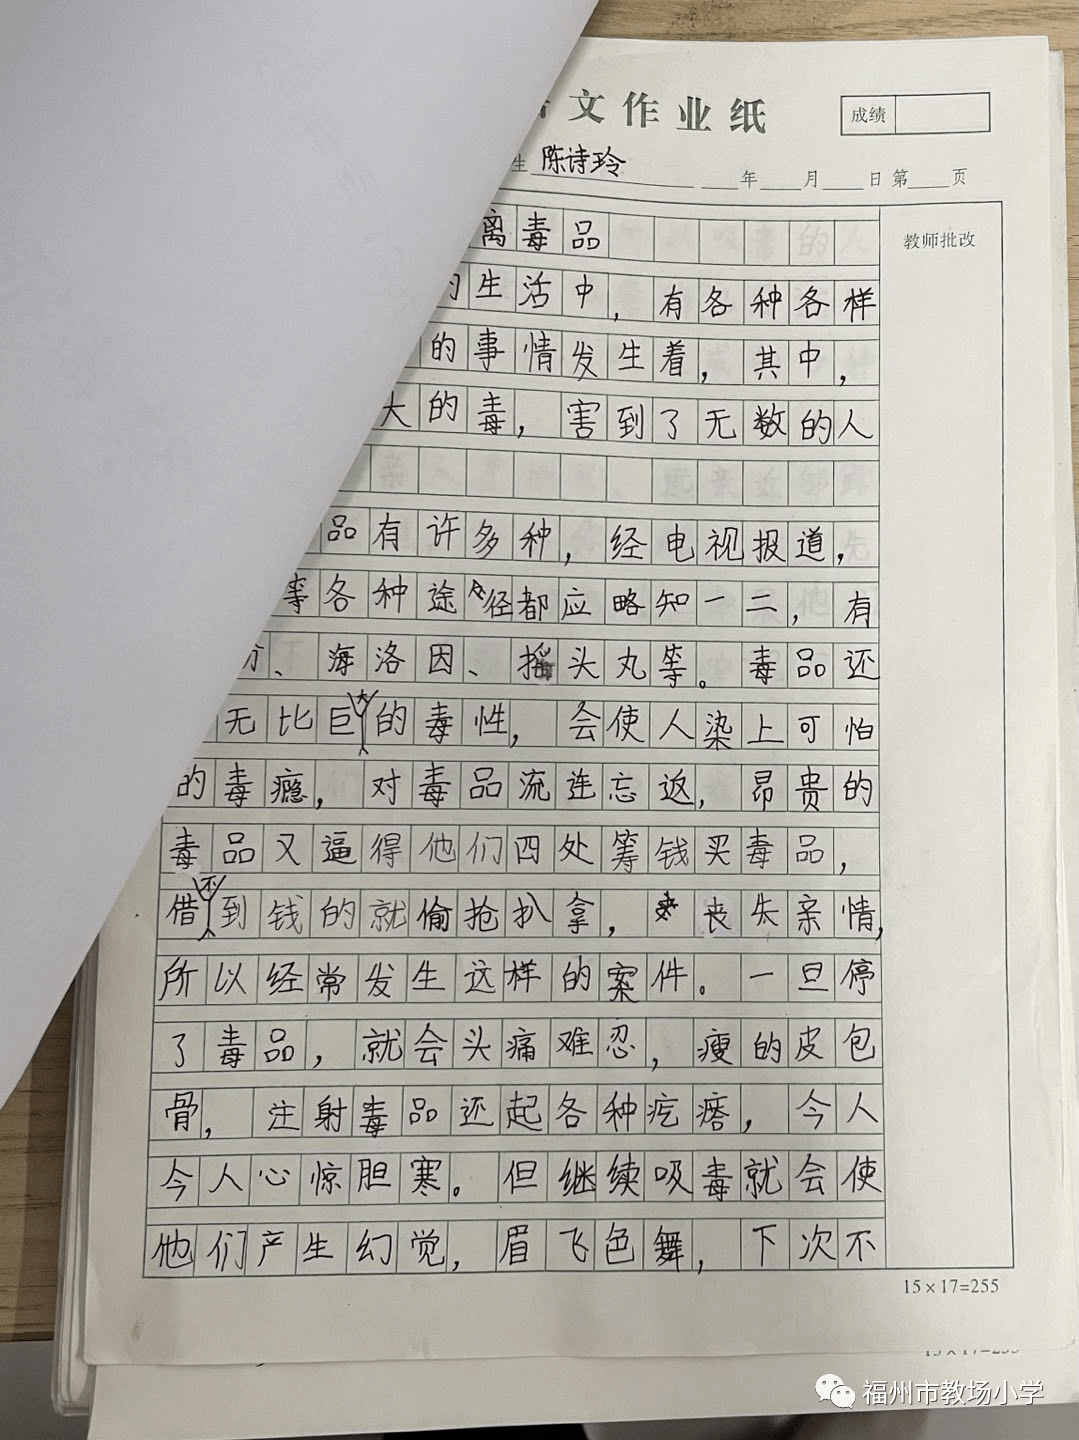 文作业纸
成绩
生 陈诗玲 年 月 日 第 页
教师批改
离毒品
的生活中,有各种各样
的事情发生着,其中,
大的毒,害到了无数的人
品有许多种,经电视报道,
等各种途径都应略知一二,有
、海洛因、摇头丸等。毒品还
无比巨大的毒性,会使人染上可怕
的毒瘾,对毒品流连忘返,昂贵的
毒品又逼得他们四处筹钱买毒品,
借不到钱的就偷抢扒拿,丧失亲情,
所以经常发生这样的案件。一旦停
了毒品,就会头痛难忍,瘦的皮包
骨,注射毒品还起各种疙瘩,今人
今人心惊胆寒。但继续吸毒就会使
他们产生幻觉,眉飞色舞,下次不
15×17=255
15×17=255
福州市教场小学